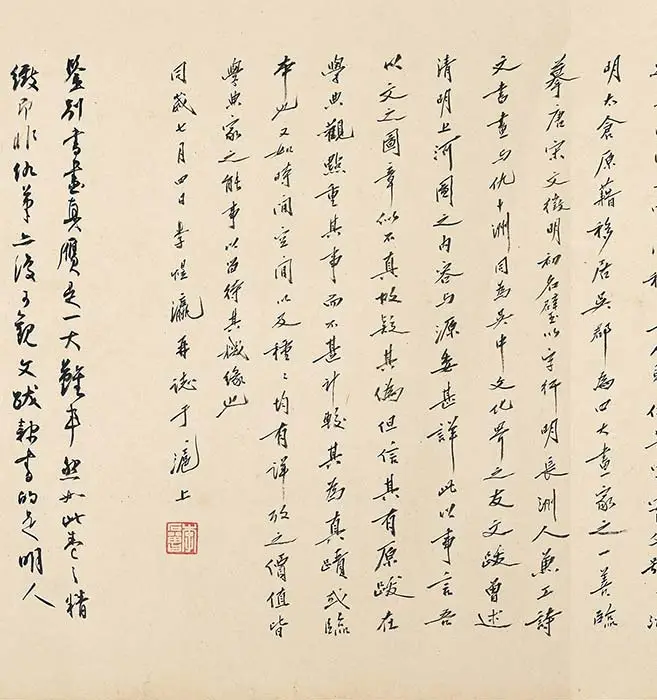 明太倉原籍移居吳郡為四大畫家之一善臨
摹唐宋文徵明初名璧以字行明長洲人兼工詩
文書畫與仇十洲同為吳中文化界之友文跋曾述
清明上河圖之內容與源委甚詳此以事言吾
以文之圖章似不真故疑其偽但信其有原跋在
學典觀點重其事而不甚計較其為真蹟或臨
本也又如時間空間以及種種均有詳攷之價值皆
學典家之能事以留待其機緣也
同歲七月四日李煜瀛再誌于滬上
鑒別書畫真贋是一大難事然如此卷之精
緻即非仇筆亦復可觀文跋隸書的是明人